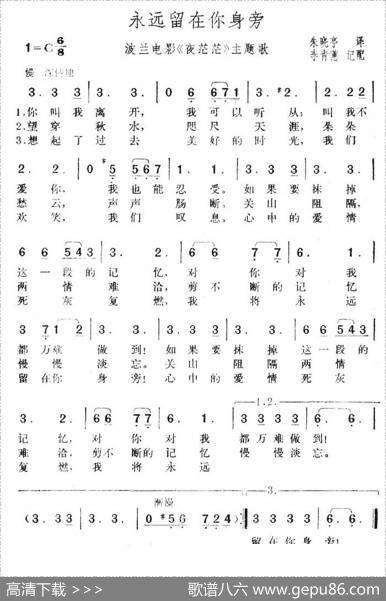 永远留在你身旁
1=C 6/8
波兰电影《夜茫茫》主题歌
朱晓亭 译
李青葱 记配
慢 深情地
3. 3 3 | 3. 3. | 0 6 671 | 3. 3 3 | 3. 3.
1.你 叫我 离 开, 我 可 以 听 从; 叫我不
2.望 穿 秋 水, 咫 尺 天 涯, 朵 朵
3.想 起 了 过 去 美 好 的 时 光, 我 们
2. 2. | 0 #5 567 | 1. 7. | 6. 6 6 | 6. 6.
爱 你, 我 也能 忍 受。如 果 要 抹 掉
愁 云, 声 声 肠 断。关 山 阻 隔,
欢 笑, 我 们 叹 息。心 中 的 爱 情
6 6 543 | 3. 2. | 6 6 7 7 | 6. 1. | 3. 3.
这 一 段 的 记 忆, 对 你 对 我
两 情 难 洽, 剪 不 断 的 记 忆
死 灰 复 燃, 我 将 永 远
3 71 2 | 3. 3. | 6. 6 6 | 6. 6. | 6 6 543
都 万难 做 到! 如 果 要 抹 掉 这 一 段 的
慢 慢 淡 忘。关 山 阻 隔 两 情
留 在 你 身 旁! 心 中 的 爱 情 死 灰
1.2.
3. 2. | 66 77 | 6. 1. | 3 3 3 3 | 6. 6.
记 忆, 对 你 对 我 都 万 难 做 到!
难 洽, 剪不 断的 记 忆 慢 慢 淡 忘。
复 燃, 我 将 永 远
3.
渐慢
(3. 33 | 3. 3. | 0 #56 724) | 3 3 3 3 | 6. 6.
留 在 你 身 旁!
高清下载 >>>
歌谱八六 www.gepu86.com